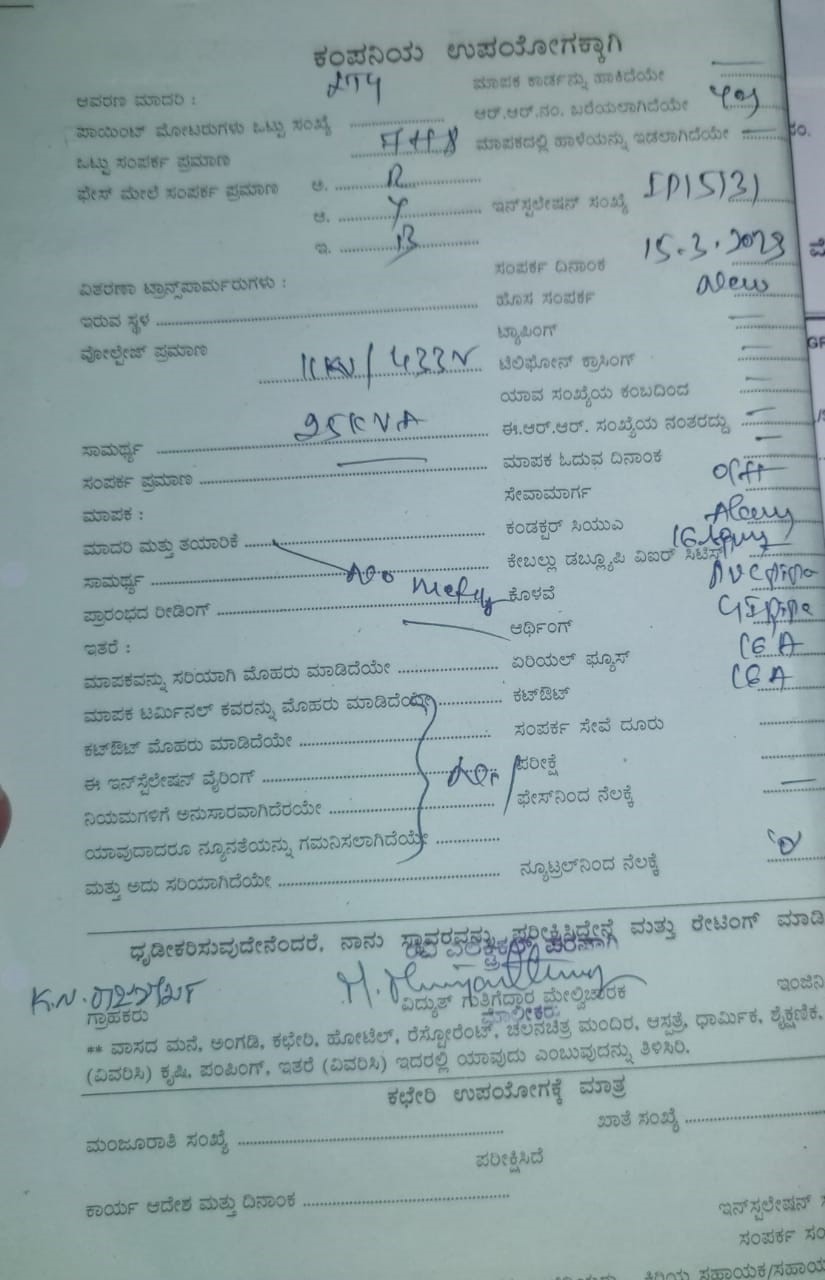 ಕಂಪನಿಯ ಉಪಯೋಗಕ್ಕಾಗಿ
ಆವರಣ ಮಾದರಿ : ಮಾಪಕ ಕಾರ್ಡನ್ನು ಹಾಕಿದೆಯೇ
ಪಾಯಿಂಟ್ ಮೋಟರುಗಳು ಒಟ್ಟು ಸಂಖ್ಯೆ ಆರ್.ಆರ್.ನಂ. ಬರೆಯಲಾಗಿದೆಯೇ yes
ಒಟ್ಟು ಸಂಪರ್ಕ ಪ್ರಮಾಣ ಮಾಪಕದಲ್ಲಿ ಹಾಳೆಯನ್ನು ಇಡಲಾಗಿದೆಯೇ
ಫೇಸ್ ಮೇಲೆ ಸಂಪರ್ಕ ಪ್ರಮಾಣ ಅ. R
ಆ. Y ಇನ್‌ಸ್ಟಲೇಷನ್ ಸಂಖ್ಯೆ IP15131
ಇ. B
ಸಂಪರ್ಕ ದಿನಾಂಕ 15.3.2023
ವಿತರಣಾ ಟ್ರಾನ್ಸ್‌ಪಾರ್ಮರುಗಳು : ಹೊಸ ಸಂಪರ್ಕ New
ಇರುವ ಸ್ಥಳ ಟ್ಯಾಪಿಂಗ್
ವೋಲ್ಟೇಜ್ ಪ್ರಮಾಣ 11KV/433V ಟೆಲಿಫೋನ್ ಕ್ರಾಸಿಂಗ್
ಯಾವ ಸಂಖ್ಯೆಯ ಕಂಬದಿಂದ
ಸಾಮರ್ಥ್ಯ 25KVA ಈ.ಆರ್.ಆರ್. ಸಂಖ್ಯೆಯ ನಂತರದ್ದು
ಸಂಪರ್ಕ ಪ್ರಮಾಣ ಮಾಪಕ ಓದುವ ದಿನಾಂಕ
ಮಾಪಕ : ಸೇವಾಮಾರ್ಗ OH
ಮಾದರಿ ಮತ್ತು ತಯಾರಿಕೆ ಕಂಡಕ್ಟರ್ ಸಿಯುಎ
ಸಾಮರ್ಥ್ಯ ಕೇಬಲ್ಲು ಡಬ್ಲ್ಯೂಪಿ ವಿಐರ್ ಸಿಟಿಸ್
ಪ್ರಾರಂಭದ ರೀಡಿಂಗ್ No Meter ಕೊಳವೆ PVC pipe
ಇತರೆ : ಆರ್ಥಿಂಗ್ GI pipe
ಮಾಪಕವನ್ನು ಸರಿಯಾಗಿ ಮೊಹರು ಮಾಡಿದೆಯೇ ಏರಿಯಲ್ ಫ್ಯೂಸ್ 16A
ಮಾಪಕ ಟರ್ಮಿನಲ್ ಕವರನ್ನು ಮೊಹರು ಮಾಡಿದೆಯೇ ಕಟ್‌ಔಟ್ 16A
ಕಟ್‌ಔಟ್ ಮೊಹರು ಮಾಡಿದೆಯೇ ಸಂಪರ್ಕ ಸೇವೆ ದೂರು
ಈ ಇನ್‌ಸ್ಟೆಲೇಷನ್ ವೈರಿಂಗ್ ಪರೀಕ್ಷೆ
ನಿಯಮಗಳಿಗೆ ಅನುಸಾರವಾಗಿದೆರಯೇ ಫೇಸ್‌ನಿಂದ ನೆಲಕ್ಕೆ
ಯಾವುದಾದರೂ ನ್ಯೂನತೆಯನ್ನು ಗಮನಿಸಲಾಗಿದೆಯೇ
ಮತ್ತು ಅದು ಸರಿಯಾಗಿದೆಯೇ ನ್ಯೂಟ್ರಲ್‌ನಿಂದ ನೆಲಕ್ಕೆ
ಧೃಡೀಕರಿಸುವುದೇನೆಂದರೆ, ನಾನು ಸ್ಥಾವರವನ್ನು ಪರೀಕ್ಷಿಸಿದ್ದೇನೆ ಮತ್ತು ರೇಟಿಂಗ್ ಮಾಡಿ
ಪರವಾಗಿ
ಗ್ರಾಹಕರು ವಿದ್ಯುತ್ ಗುತ್ತಿಗೆದ್ದಾರ ಮೇಲ್ವಿಚಾರಕ ಇಂಜಿನಿ
ಮಾಲೀಕರು
** ವಾಸದ ಮನೆ, ಅಂಗಡಿ, ಕಛೇರಿ, ಹೋಟೆಲ್, ರೆಸ್ಟೋರೆಂಟ್, ಚಲನಚಿತ್ರ ಮಂದಿರ, ಆಸ್ಪತ್ರೆ, ಧಾರ್ಮಿಕ, ಶೈಕ್ಷಣಿಕ,
(ವಿವರಿಸಿ) ಕೃಷಿ, ಪಂಪಿಂಗ್, ಇತರೆ (ವಿವರಿಸಿ) ಇದರಲ್ಲಿ ಯಾವುದು ಎಂಬುವುದನ್ನು ತಿಳಿಸಿರಿ.
ಕಛೇರಿ ಉಪಯೋಗಕ್ಕೆ ಮಾತ್ರ
ಮಂಜೂರಾತಿ ಸಂಖ್ಯೆ ಖಾತೆ ಸಂಖ್ಯೆ
ಪರೀಕ್ಷಿಸಿದೆ
ಕಾರ್ಯ ಆದೇಶ ಮತ್ತು ದಿನಾಂಕ
ಇನ್‌ಸ್ಟಲೇಷನ್
ಸಂಪರ್ಕ